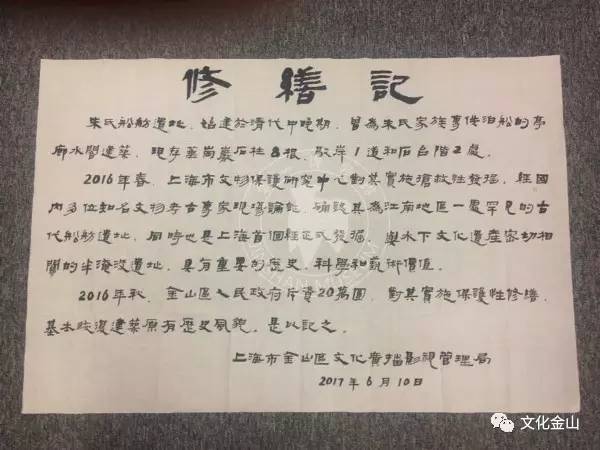 修繕記
朱氏船舫遺址，始建於清代中晚期，曾為朱氏家族專供泊船的亭
廊水閣建築，現存花崗巖石柱8根，駁岸1道和石台階2處。
2016年春，上海市文物保護研究中心對其實施搶救性發掘，經國
內多位知名文物考古專家現場論証，確認其為江南地區一處罕見的古
代船舫遺址，同時也是上海首個經正式發掘，與水下文化遺產密切相
關的半淹沒遺址，具有重要的歷史、科學和藝術價值。
2016年秋，金山區人民政府斥資20萬圓，對其實施保護性修繕，
基本恢復建築原有歷史風貌。是以記之。
上海市金山區文化廣播影視管理局
2017年6月10日
文化金山